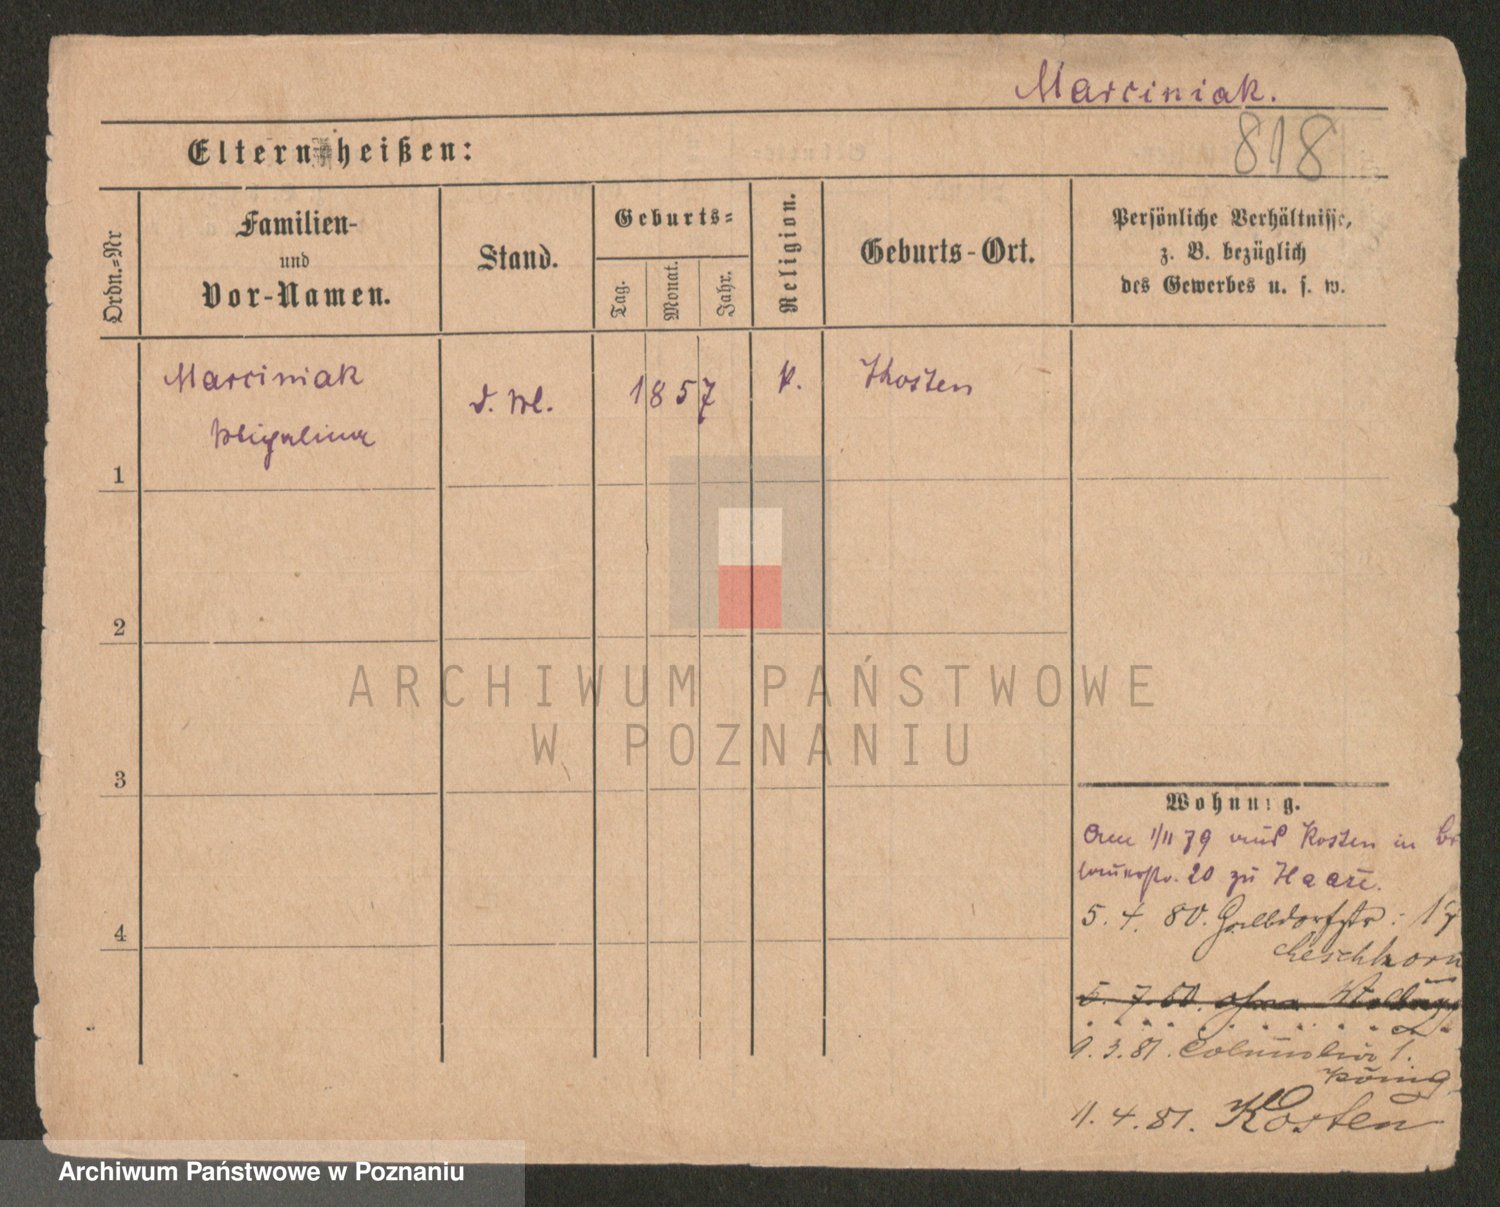 Marciniak.
818
Eltern heißen:
Ordn.-Nr
Familien-
und
Vor-Namen.
Stand.
Geburts-
Tag.
Monat.
Jahr.
Religion.
Geburts-Ort.
Persönliche Verhältnisse,
z. B. bezüglich
des Gewerbes u. s. w.
Marciniak
d. Ml.
1857
k.
Kosten
1
2
3
4
ARCHIWUM PAŃSTWOWE
W POZNANIU
Wohnung.
Am 1/11 79 aus Kosten in
20 zu Haase.
5. 4. 80. 17
5. 7. 80. ohne
9. 3. 81. Columbia 1.
König
11. 4. 81. Kosten
Archiwum Państwowe w Poznaniu